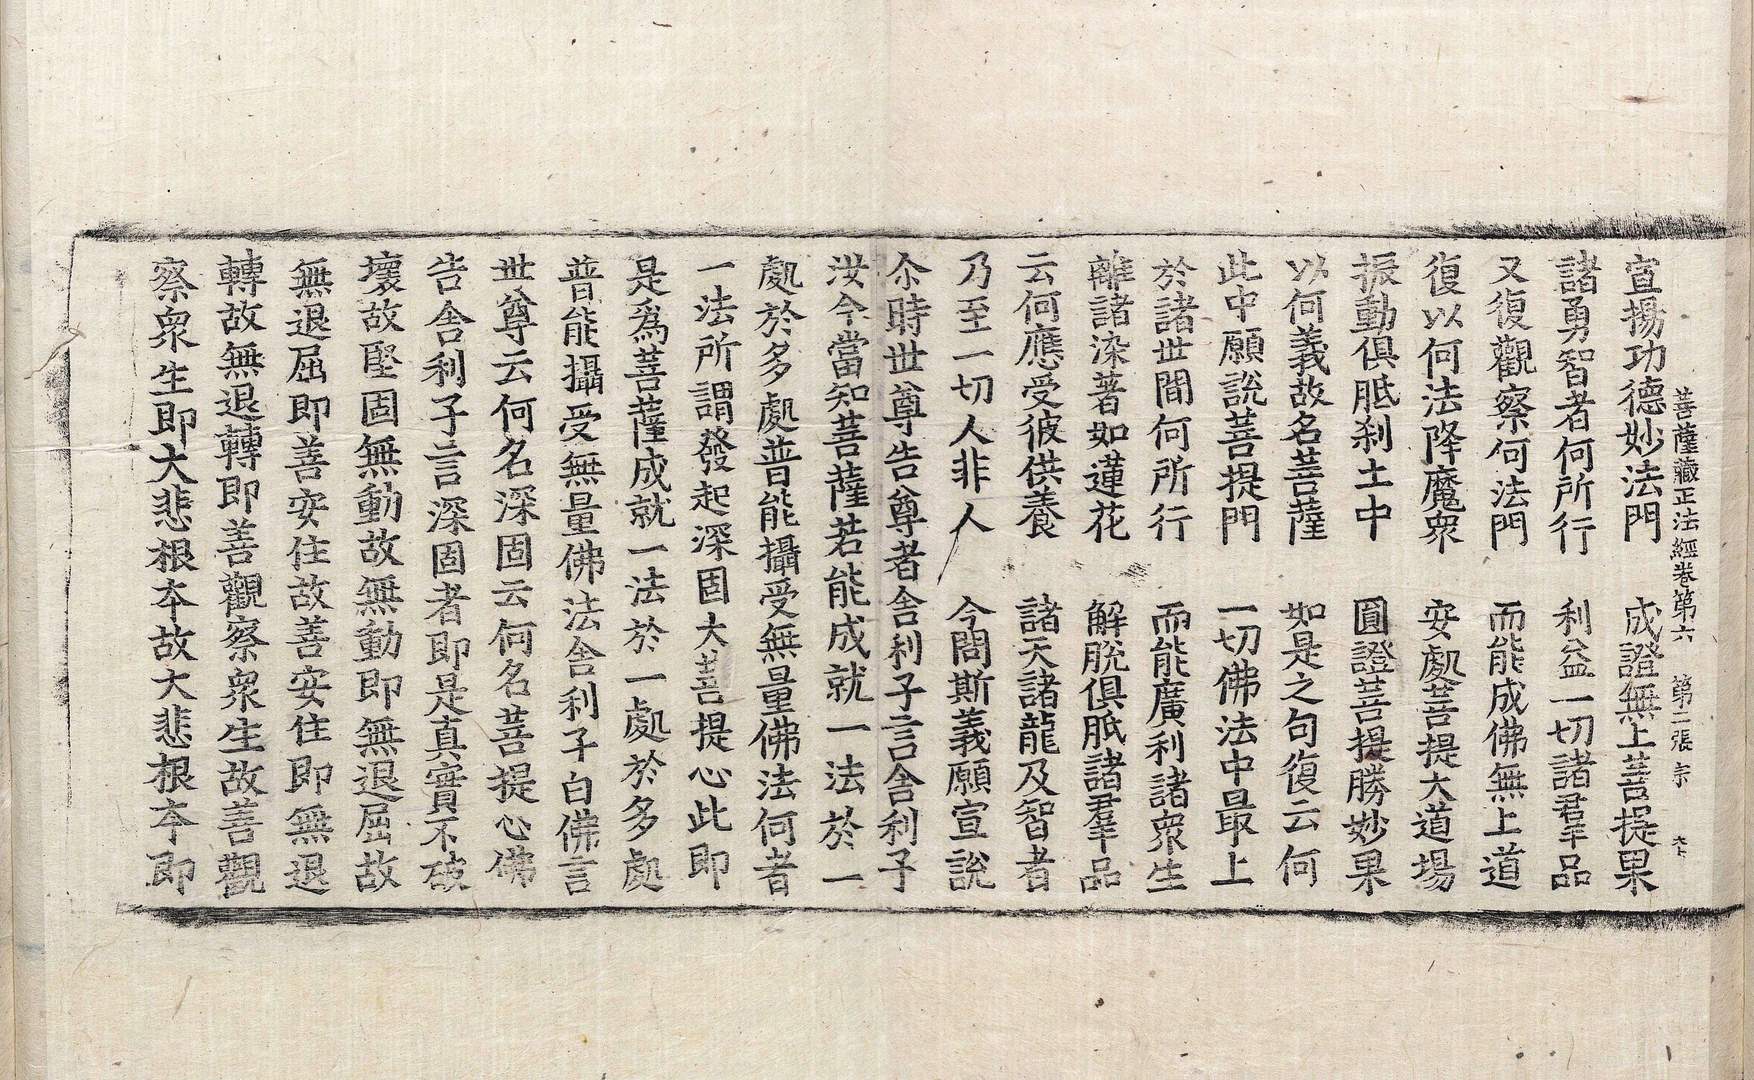 菩薩藏正法經卷第六 第二張 宗
宣揚功德妙法門 成證無上菩提果
諸勇智者何所行 利益一切諸羣品
又復觀察何法門 而能成佛無上道
復以何法降魔衆 安處菩提大道場
振動俱胝刹土中 圓證菩提勝妙果
以何義故名菩薩 如是之句復云何
此中願說菩提門 一切佛法中最上
於諸世間何所行 而能廣利諸衆生
離諸染著如蓮花 解脫俱胝諸羣品
云何應受彼供養 諸天諸龍及智者
乃至一切人非人 今問斯義願宣說
尒時世尊告尊者舍利子言舍利子
汝今當知菩薩若能成就一法於一
處於多處普能攝受無量佛法何者
一法所謂發起深固大菩提心此即
是爲菩薩成就一法於一處於多處
普能攝受無量佛法舍利子白佛言
世尊云何名深固云何名菩提心佛
告舍利子言深固者即是真實不破
壞故堅固無動故無動即無退屈故
無退屈即善安住故善安住即無退
轉故無退轉即善觀察衆生故善觀
察衆生即大悲根本故大悲根本即